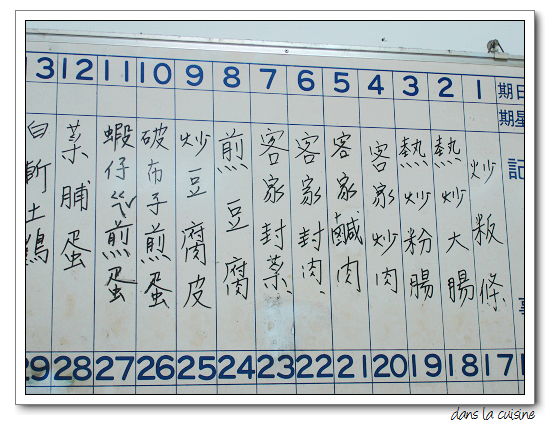 13 12 11 10 9 8 7 6 5 4 3 2 1 期日
期星
記事
炒粄條
熱炒大腸
熱炒粉腸
客家炒肉
客家鹹肉
客家封肉
客家封菜
煎豆腐
炒豆腐皮
破布子煎蛋
蝦仔煎蛋
菜脯蛋
白斬土鷄
29 28 27 26 25 24 23 22 21 20 19 18 17
dans la cuisine